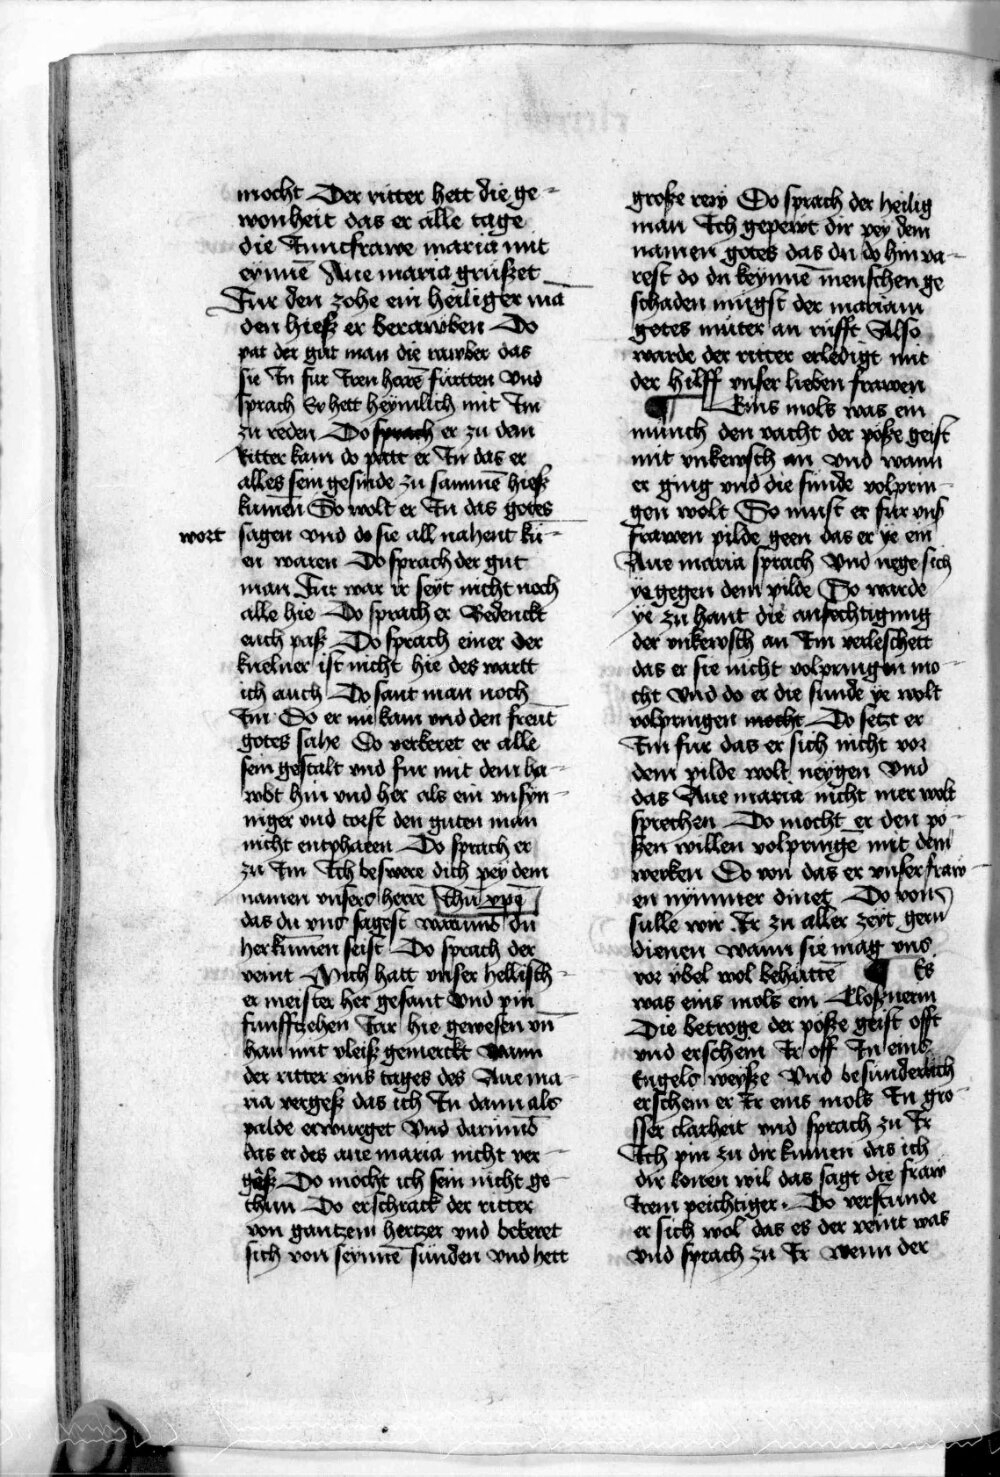 mocht Der ritter hett die ge-
wonheit das er alle tage
die Iuncfrawe maria mit
eynnē Aue maria grüszet
Fur den zohe ein heiliger mā
den hiesz er berawben Do
pat der gut man die rawber das
sie In fur Iren herrē fürtten Vnd
sprach Er hett heymlich mit Im
zu reden Do sprach er zu dem
Ritter kam do patt er In das er
alles sein gesinde zu samme hiesz
kumēn So wolt er In das gotes
wort sagen vnd do sie all nahent kū
en waren Do sprach der gut
man Fur war ir seyt nicht noch
alle hie Do sprach er Bedenckt
euch pasz Do sprach einer der
kuelner ist nicht hie des wartt
ich auch Do sant man noch
Im Do er nū kam vnd den freūt
gotes sahe Do verkeret er alle
sein gestalt vnd fur mit dem ha-
wbt hin vnd her als ein vnsyn-
niger vnd torst den guten man
nicht entphaten Do sprach er
zu Im Ich beswere dich pey dem
namen vnsers herrē Ihū xpē
das du vns sagest warumb du
herkūmen seist Do sprach der
veint Mich hatt vnser hellisch-
er meister her gesant Vnd pin
funffzehen Iar hie gewesen vn̄
han mit vleisz gemerckt Wann
der ritter eins tages des Aue ma-
ria vergesz das ich In dann als
palde erwurget Vnd darumb
das er des aue maria nicht ver-
gasz Do mocht ich sein nicht ge-
thun Do erschrack der ritter
von gantzem hertzer vnd bekeret
sich von seynnē sunden vnd hett
grosze rew Do sprach der heilig
man Ich gepewt dir pey dem
namen gotes das du do hin va-
rest do du keynnē menschen ge
schaden mugst der mariam
gotes muter an rufft Also
warde der ritter erledigt mit
der hilff vnser lieben frawen
¶ Eins mols was ein
munch den vacht der posze geist
mit vnkewsch an vnd wann
er ging vnd die sunde volprin-
gen wolt So must er fur vns
frawen pilde geen das er ye ein
Aue maria sprach Vnd nege sich
ye gegen dem pilde So warde
ye zu hant die anfechtigung
der vnkewsch an Im verleschett
das er sie nicht volpringen mo-
cht Vnd do er die sunde ye wolt
volpringen mocht Do setzt er
Im fur das er sich nicht vor
dem pilde wolt neygen Vnd
das Aue maria nicht mer wolt
sprechen Do mocht er den po-
szen willen volpringē mit dem
wercken Do von das er vnser fraw-
en nymmer dinet Do von
sulle wir Ir zu aller zeyt gern
dienen wann sie mag vns
vor vbel wol behuttē ¶ Es
was eins mols ein Closznerin
Die betroge der posze geist offt
vnd erschein Ir off In eins
Engels weysze Vnd besunderlich
erschein er Ir eins mols In gro-
sser clarheit vnd sprach zu Ir
Ich pin zu dir kumen das ich
dir lonen wil das sagt die fraw
Irem peichtiger. Do verstunde
er sich wol das es der veint was
vnd sprach zu Ir wenn der